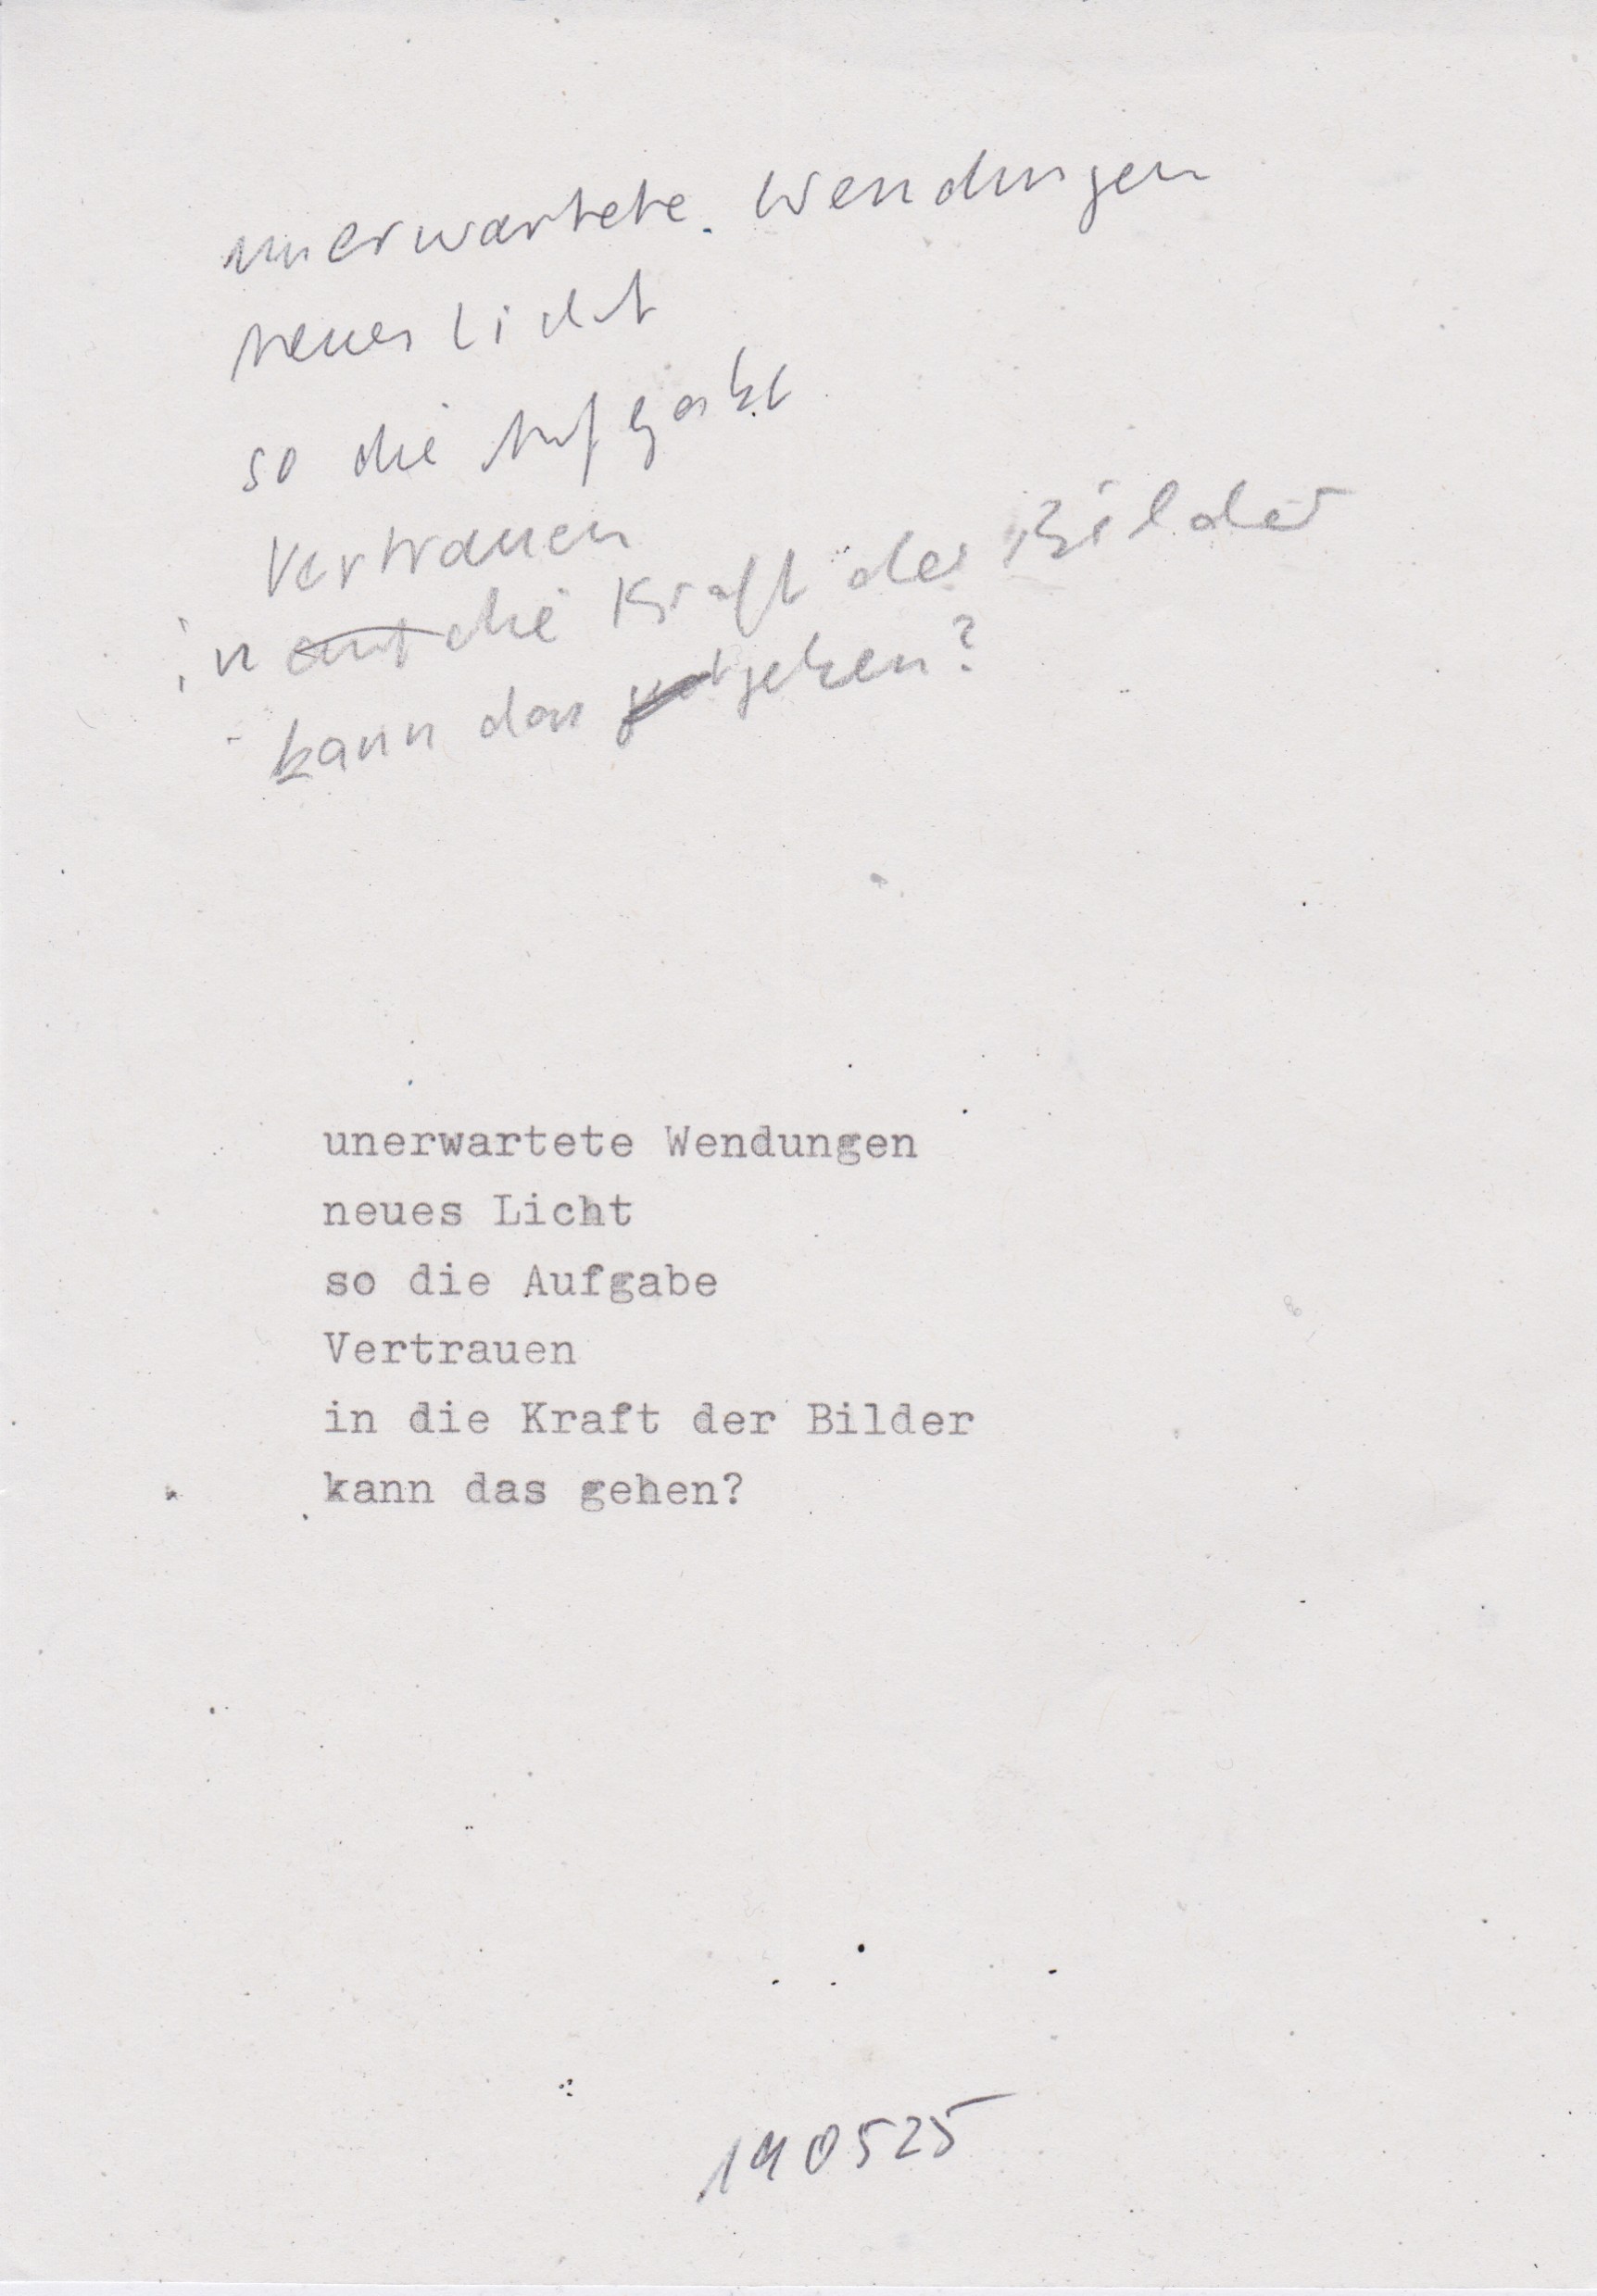 unerwartete Wendungen
neues Licht
so die Aufgabe
Vertrauen
in auf die Kraft der Bilder
kann das gehen?
unerwartete Wendungen
neues Licht
so die Aufgabe
Vertrauen
in die Kraft der Bilder
kann das gehen?
190525